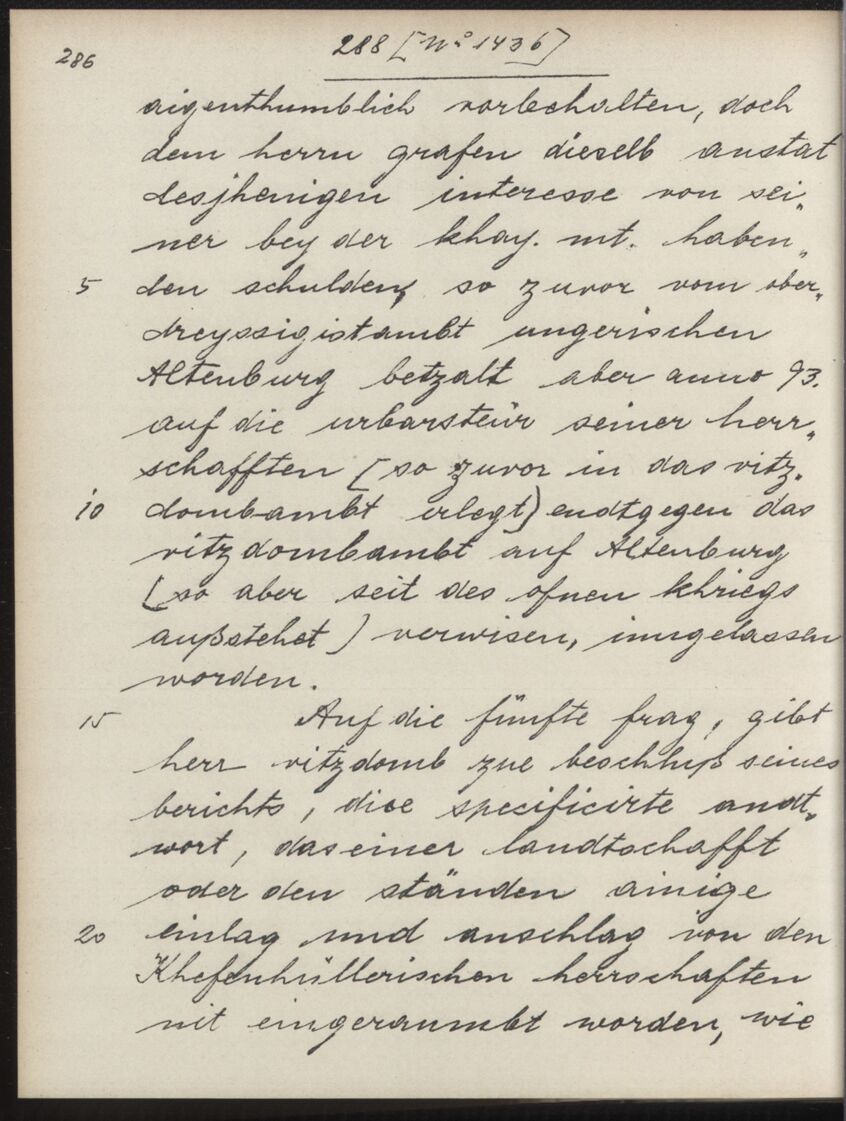 286
288 [No 1436]
aigenthumblich vorbehalten, doch
dem herrn grafen dieselb anstat
desjhenigen interesse von sei„
ner bey der khay. mt. haben„
5 den schulden, so zuvor vom ober„
dreyssigistambt ungerischen
Altenburg betzalt aber anno 93.
auf die urbarsteür seiner herr„
schafften [so zuvor in das vitz„
10 dombambt erlegt) endtgegen das
vitzdombambt auf Altenburg
[so aber seit des ofnen khriegs
außstehet] verwisen, inngelassen
worden.
15 Auf die fünfte frag, gibt
herr vitzdomb zue beschluß seines
berichts, dise specificirte andt„
wort, das einer landtschafft
oder den ständen ainige
20 einlag und anschlag von den
Khefenhüllerischen herrschaften
nit eingeraumbt worden, wie